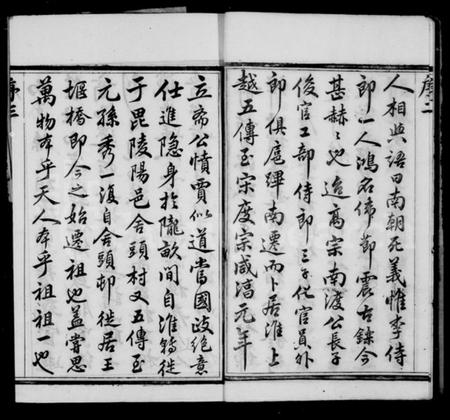 序二
人相與語曰南朝死義惟李侍
郎一人鴻名偉節震古鑠今
甚赫赫也迨高宗南渡公長子
俊官工部侍郎三子代官員外
郎俱扈蹕南遷而卜居淮上
越五傳至宗度宗咸淳元年
立齋公憤賈似道當國政絕意
仕進隱身於隴畝間自淮轉徙
于毘陵陽邑舍頭村又五傳至
元孫秀一復自舍頭邨徙居王
堰橋即今之始遷祖也蓋嘗思
萬物本乎天人本乎祖祖一也
序三